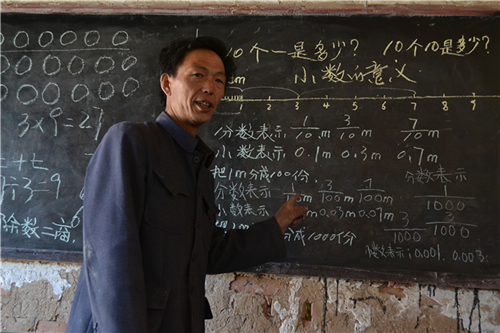 10个一是多少? 10个10是多少?
小数的意义
1m
1 2 3 4 5 6 7 8 9
分数表示 1/10m 3/10m 7/10m
小数表示 0.1m 0.3m 0.7m
把1m分成100份
分数表示 1/100m 3/100m 7/100m
小数表示 0.03m 0.07m
成1000份
分数表示
1/1000
3/1000 3/1000
小数表示:0.001. 0.003.
3×9=27
3=9
余数二